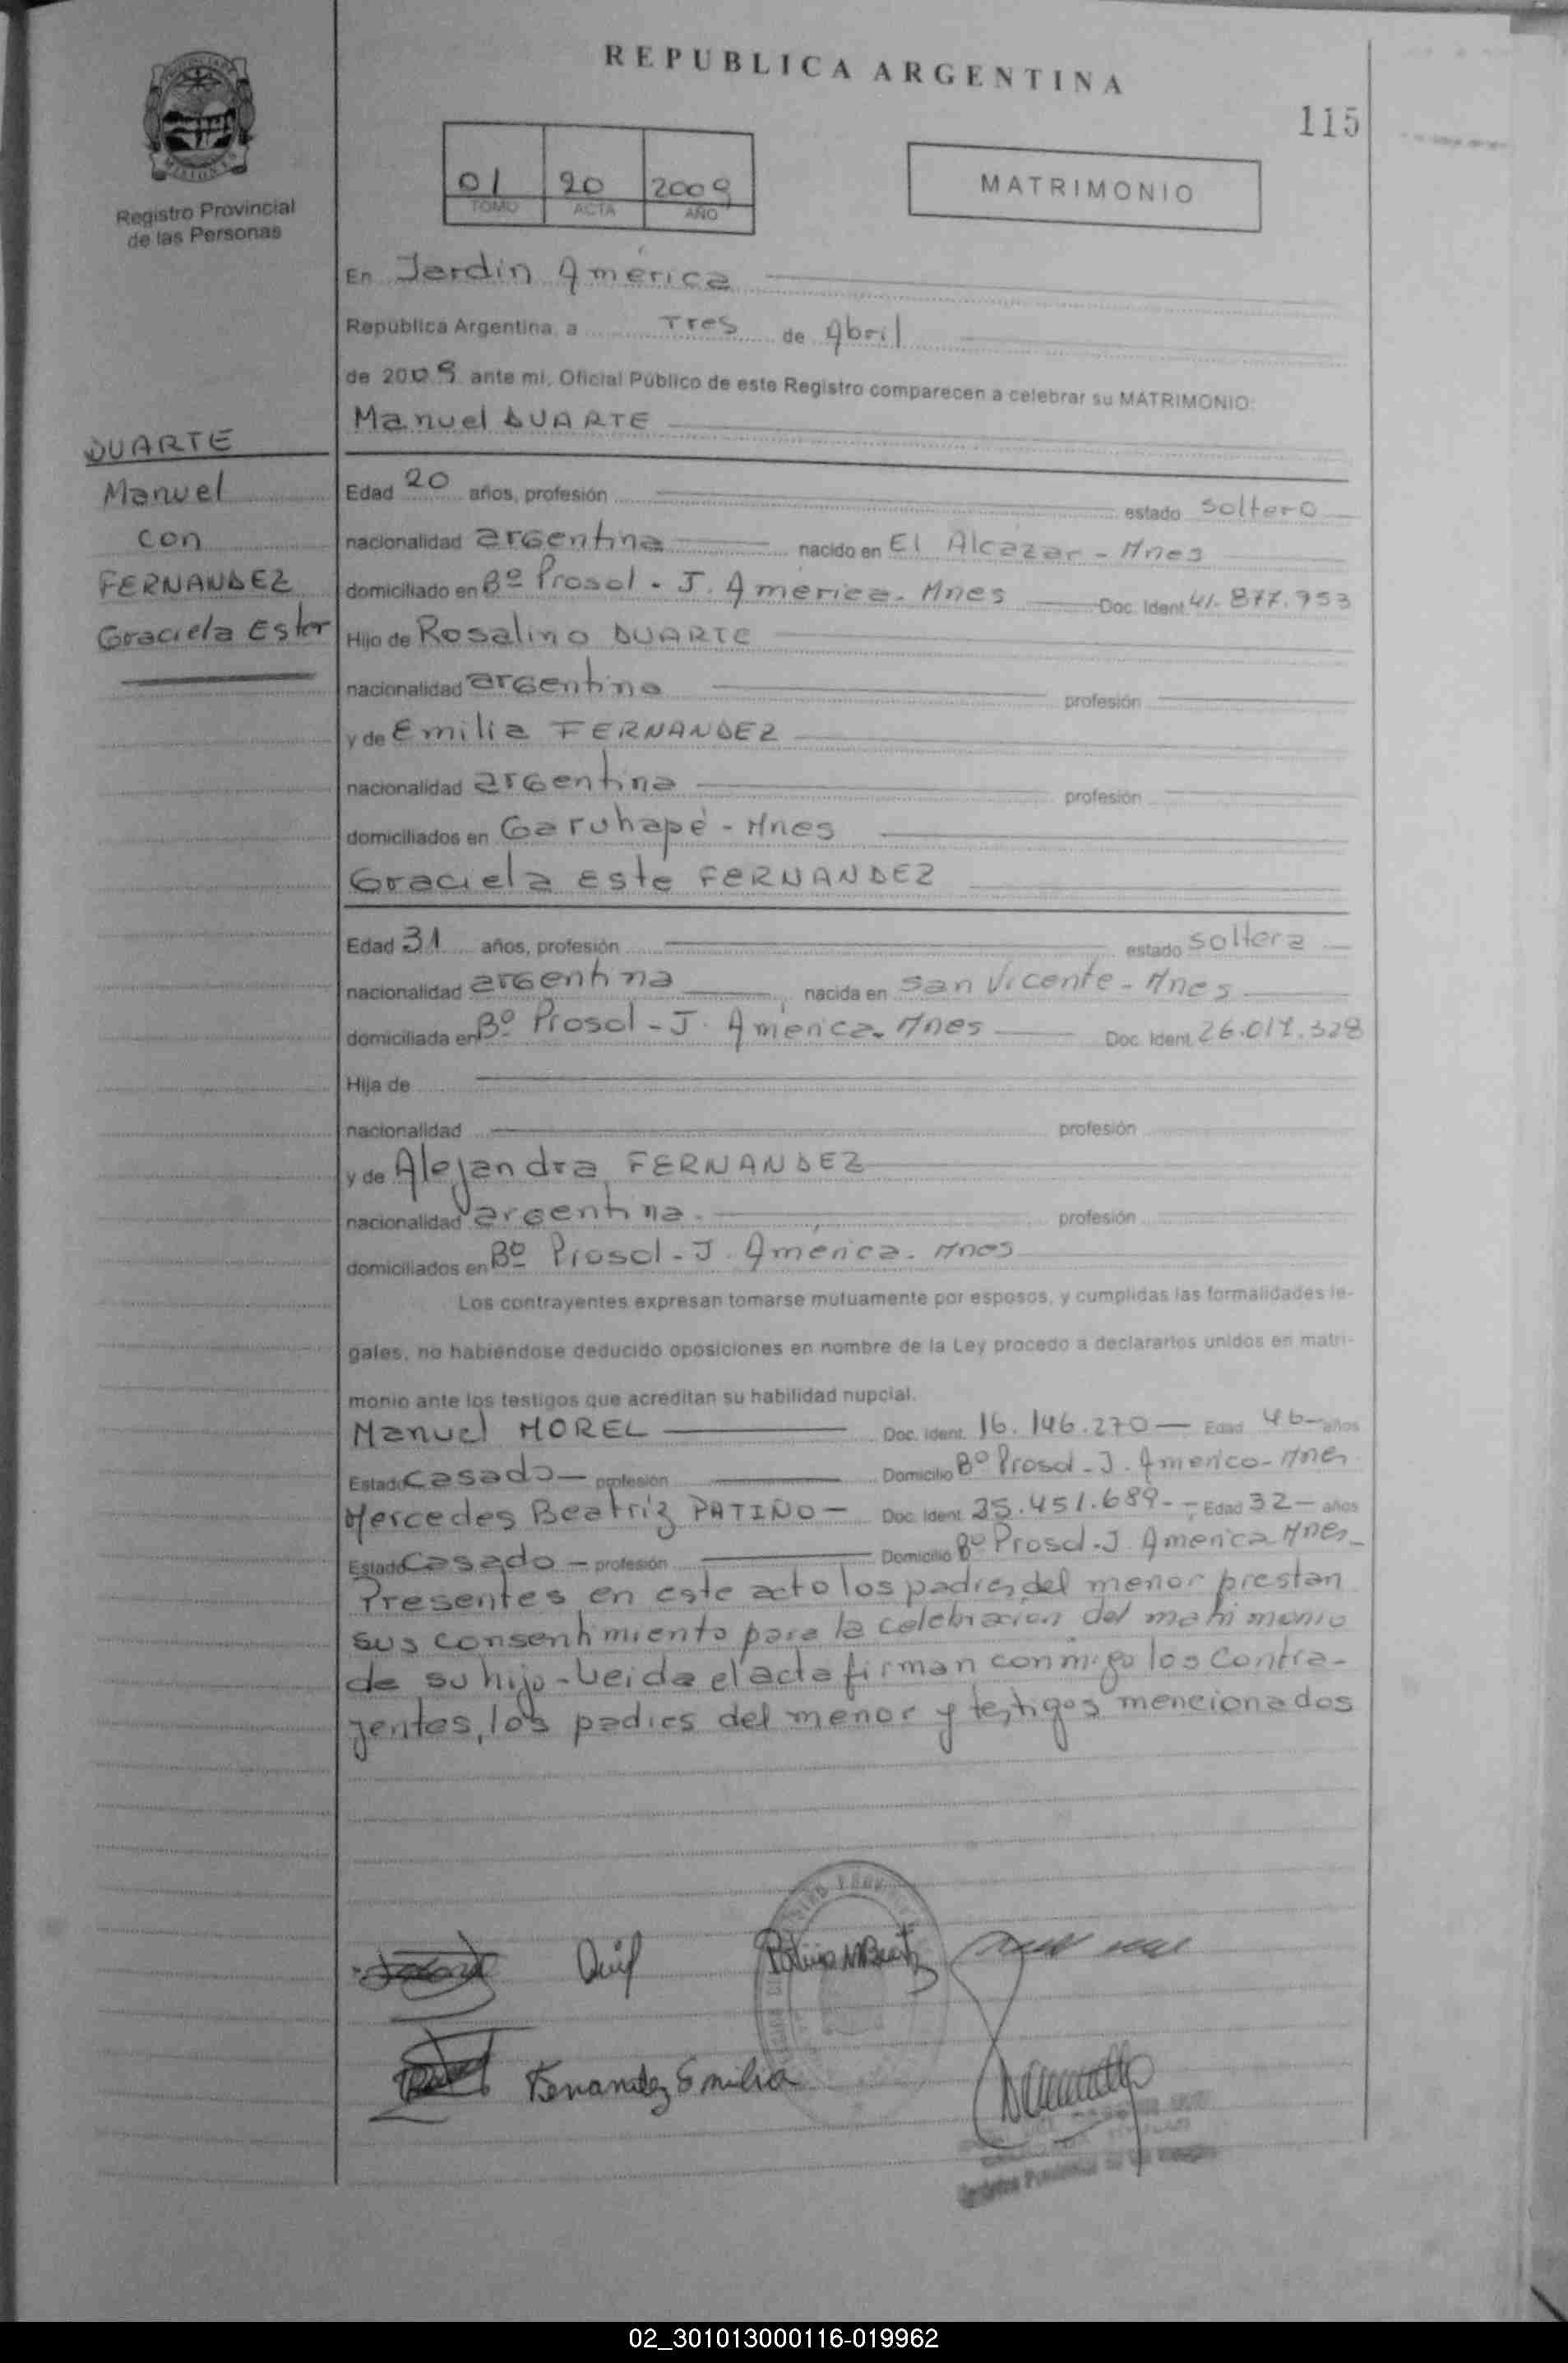 REPUBLICA ARGENTINA
115
MISIONES
Registro Provincial
de las Personas
01 20 2009
TOMO ACTA AÑO
MATRIMONIO
En Jardín América
Republica Argentina, a Tres de Abril
de 2009 ante mi, Oficial Público de este Registro comparecen a celebrar su MATRIMONIO:
Manuel DUARTE
DUARTE
Manuel
con
FERNANDEZ
Graciela Ester
Edad 20 años, profesión estado soltero
nacionalidad argentina nacido en El Alcázar - Mnes
domiciliado en Bº Prosol - J. América - Mnes Doc. Ident. 41.877.953
Hijo de Rosalino DUARTE
nacionalidad argentino profesión
y de Emilia FERNANDEZ
nacionalidad argentina profesión
domiciliados en Garuhapé - Mnes
Graciela Este FERNANDEZ
Edad 31 años, profesión estado soltera
nacionalidad argentina nacida en San Vicente - Mnes
domiciliada en Bº Prosol - J. América - Mnes Doc. Ident. 26.017.328
Hija de
nacionalidad profesión
y de Alejandra FERNANDEZ
nacionalidad argentina. profesión
domiciliados en Bº Prosol - J. América - Mnes
Los contrayentes expresan tomarse mutuamente por esposos, y cumplidas las formalidades le-
gales, no habiéndose deducido oposiciones en nombre de la Ley procedo a declararlos unidos en matri-
monio ante los testigos que acreditan su habilidad nupcial.
Manuel MOREL Doc. Ident. 16.146.270 — Edad 46 años
Estado casado — profesión Domicilio Bº Prosol - J. America - Mnes
Mercedes Beatriz PATIÑO — Doc. Ident. 35.451.689 - Edad 32 — años
Estado casado — profesión Domicilio Bº Prosol - J. America Mnes
Presentes en este acto los padres del menor prestan
sus consentimiento para la celebración del matrimonio
de su hijo - Leida el acta firman conmigo los contra-
yentes, los padres del menor y testigos mencionados
Fernandez Emilia
02_301013000116-019962